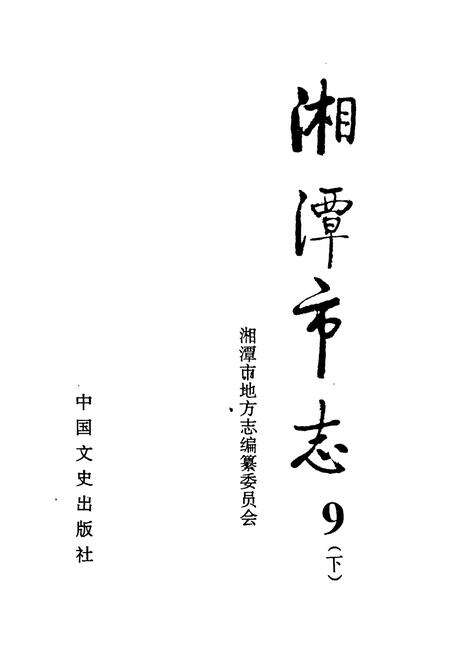 湘潭市志 9 (下)
湘潭市地方志编纂委员会
中国文史出版社